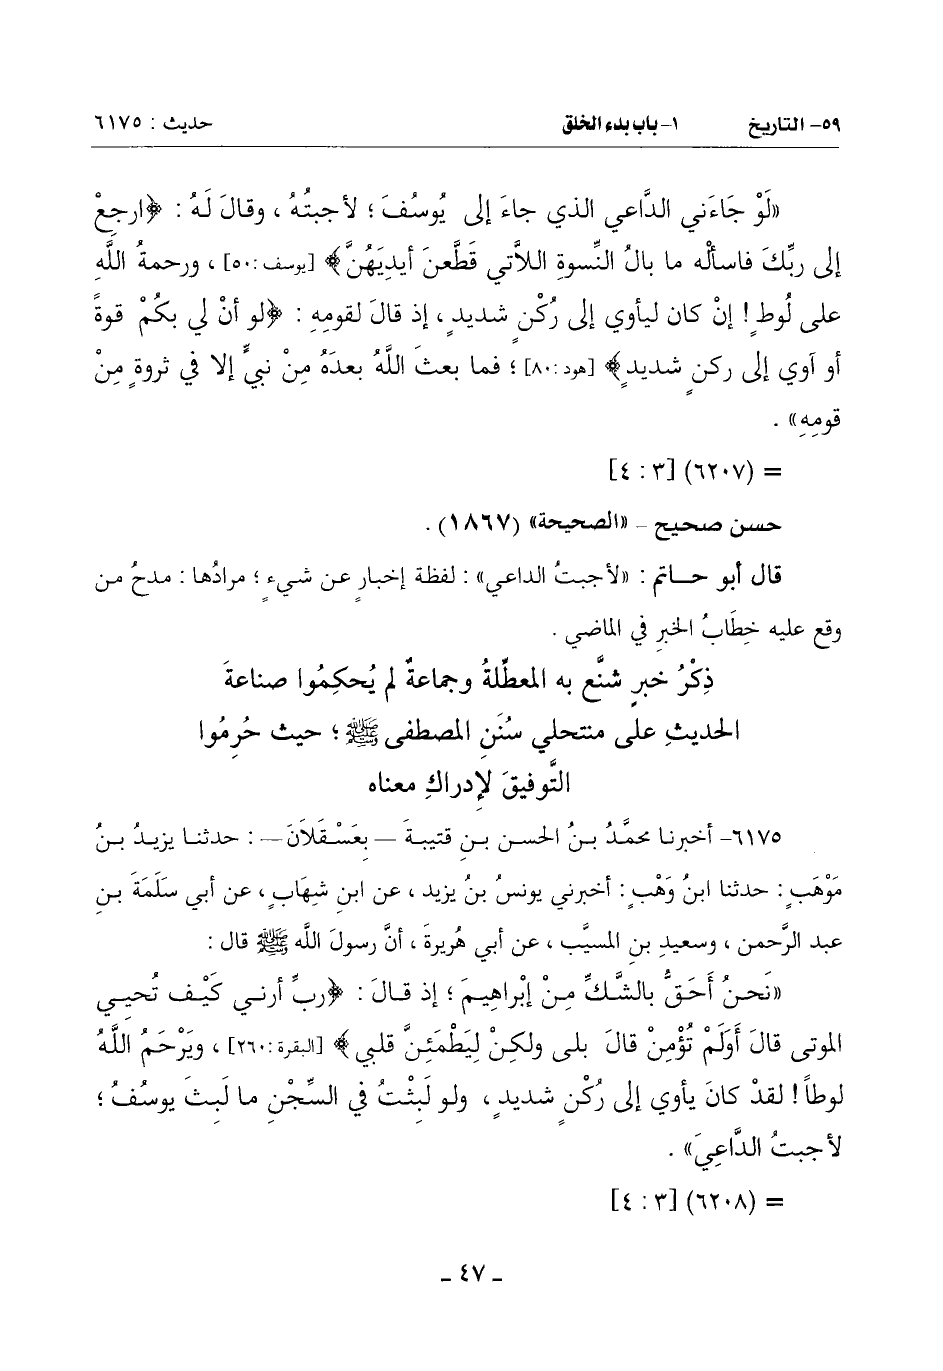 ٥٩- التاريخ ١- باب بدء الخلق حديث : ٦١٧٥
«لَوْ جَاءَني الدَّاعي الذي جاءَ إلى يُوسُفَ ؛ لأجبتُهُ ، وقالَ لَهُ : ﴿ارجعْ
إلى ربِّكَ فاسألْه ما بالُ النِّسوةِ اللاَّتي قَطَّعنَ أيديَهُنَّ﴾ [يوسف : ٥٠] ، ورحمةُ اللَّهِ
على لُوطٍ ! إنْ كان ليأوي إلى رُكْنٍ شديدٍ ، إذ قالَ لقومِهِ : ﴿لو أنْ لي بكُمْ قوةً
أو آوي إلى ركنٍ شديدٍ﴾ [هود : ٨٠] ؛ فما بعثَ اللَّهُ بعدَهُ مِنْ نبيٍّ إلا في ثروةٍ مِنْ
قومِهِ» .
= (٦٢٠٧) [٣ : ٤]
حسن صحيح – «الصحيحة» (١٨٦٧) .
قال أبو حـاتم : «لأجبتُ الداعي» : لفظة إخبارٍ عن شيءٍ ؛ مرادُها : مدحُ من
وقع عليه خِطَابُ الخبرِ في الماضي .
ذِكْرُ خبرٍ شنَّع به المعطِّلةُ وجماعةٌ لم يُحكِمُوا صناعةَ
الحديثِ على منتحلي سُنَنِ المصطفى ﷺ ؛ حيث حُرِمُوا
التَّوفيقَ لإدراكِ معناه
٦١٧٥- أخبرنا محمَّدُ بنُ الحسن بنِ قتيبةَ – بعَسْقَلاَنَ – : حدثنا يزيدُ بنُ
مَوْهَبٍ : حدثنا ابنُ وَهْبٍ : أخبرني يونسُ بنُ يزيد ، عن ابنِ شِهَابٍ ، عن أبي سَلَمَةَ بنِ
عبد الرَّحمن ، وسعيدِ بنِ المسيَّب ، عن أبي هُريرةَ ، أنَّ رسولَ اللَّه ﷺ قال :
«نَحنُ أَحَقُّ بالشَّكِّ مِنْ إبْراهِيمَ ؛ إذ قـالَ : ﴿ربِّ أرني كَيْف تُحيي
الموتى قالَ أَوَلَمْ تُؤْمِنْ قالَ بلى ولكِنْ لِيَطْمَئِنَّ قلبي﴾ [البقرة : ٢٦٠] ، ويَرْحَمُ اللَّهُ
لوطاً ! لقدْ كانَ يأوي إلى رُكْنٍ شديدٍ ، ولو لَبِثْتُ في السِّجْنِ ما لَبِثَ يوسُفُ ؛
لأجبتُ الدَّاعِيَ» .
= (٦٢٠٨) [٣ : ٤]
ـ ٤٧ ـ